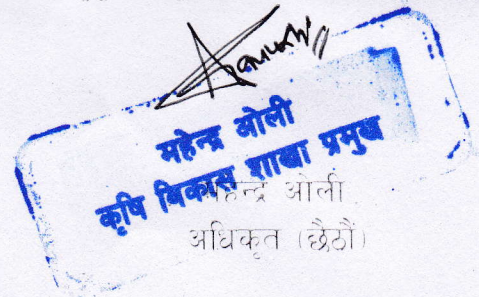 महेन्द्र ओली
कृषि विकास शाखा प्रमुख
महेन्द्र ओली
अधिकृत (छैठौं)